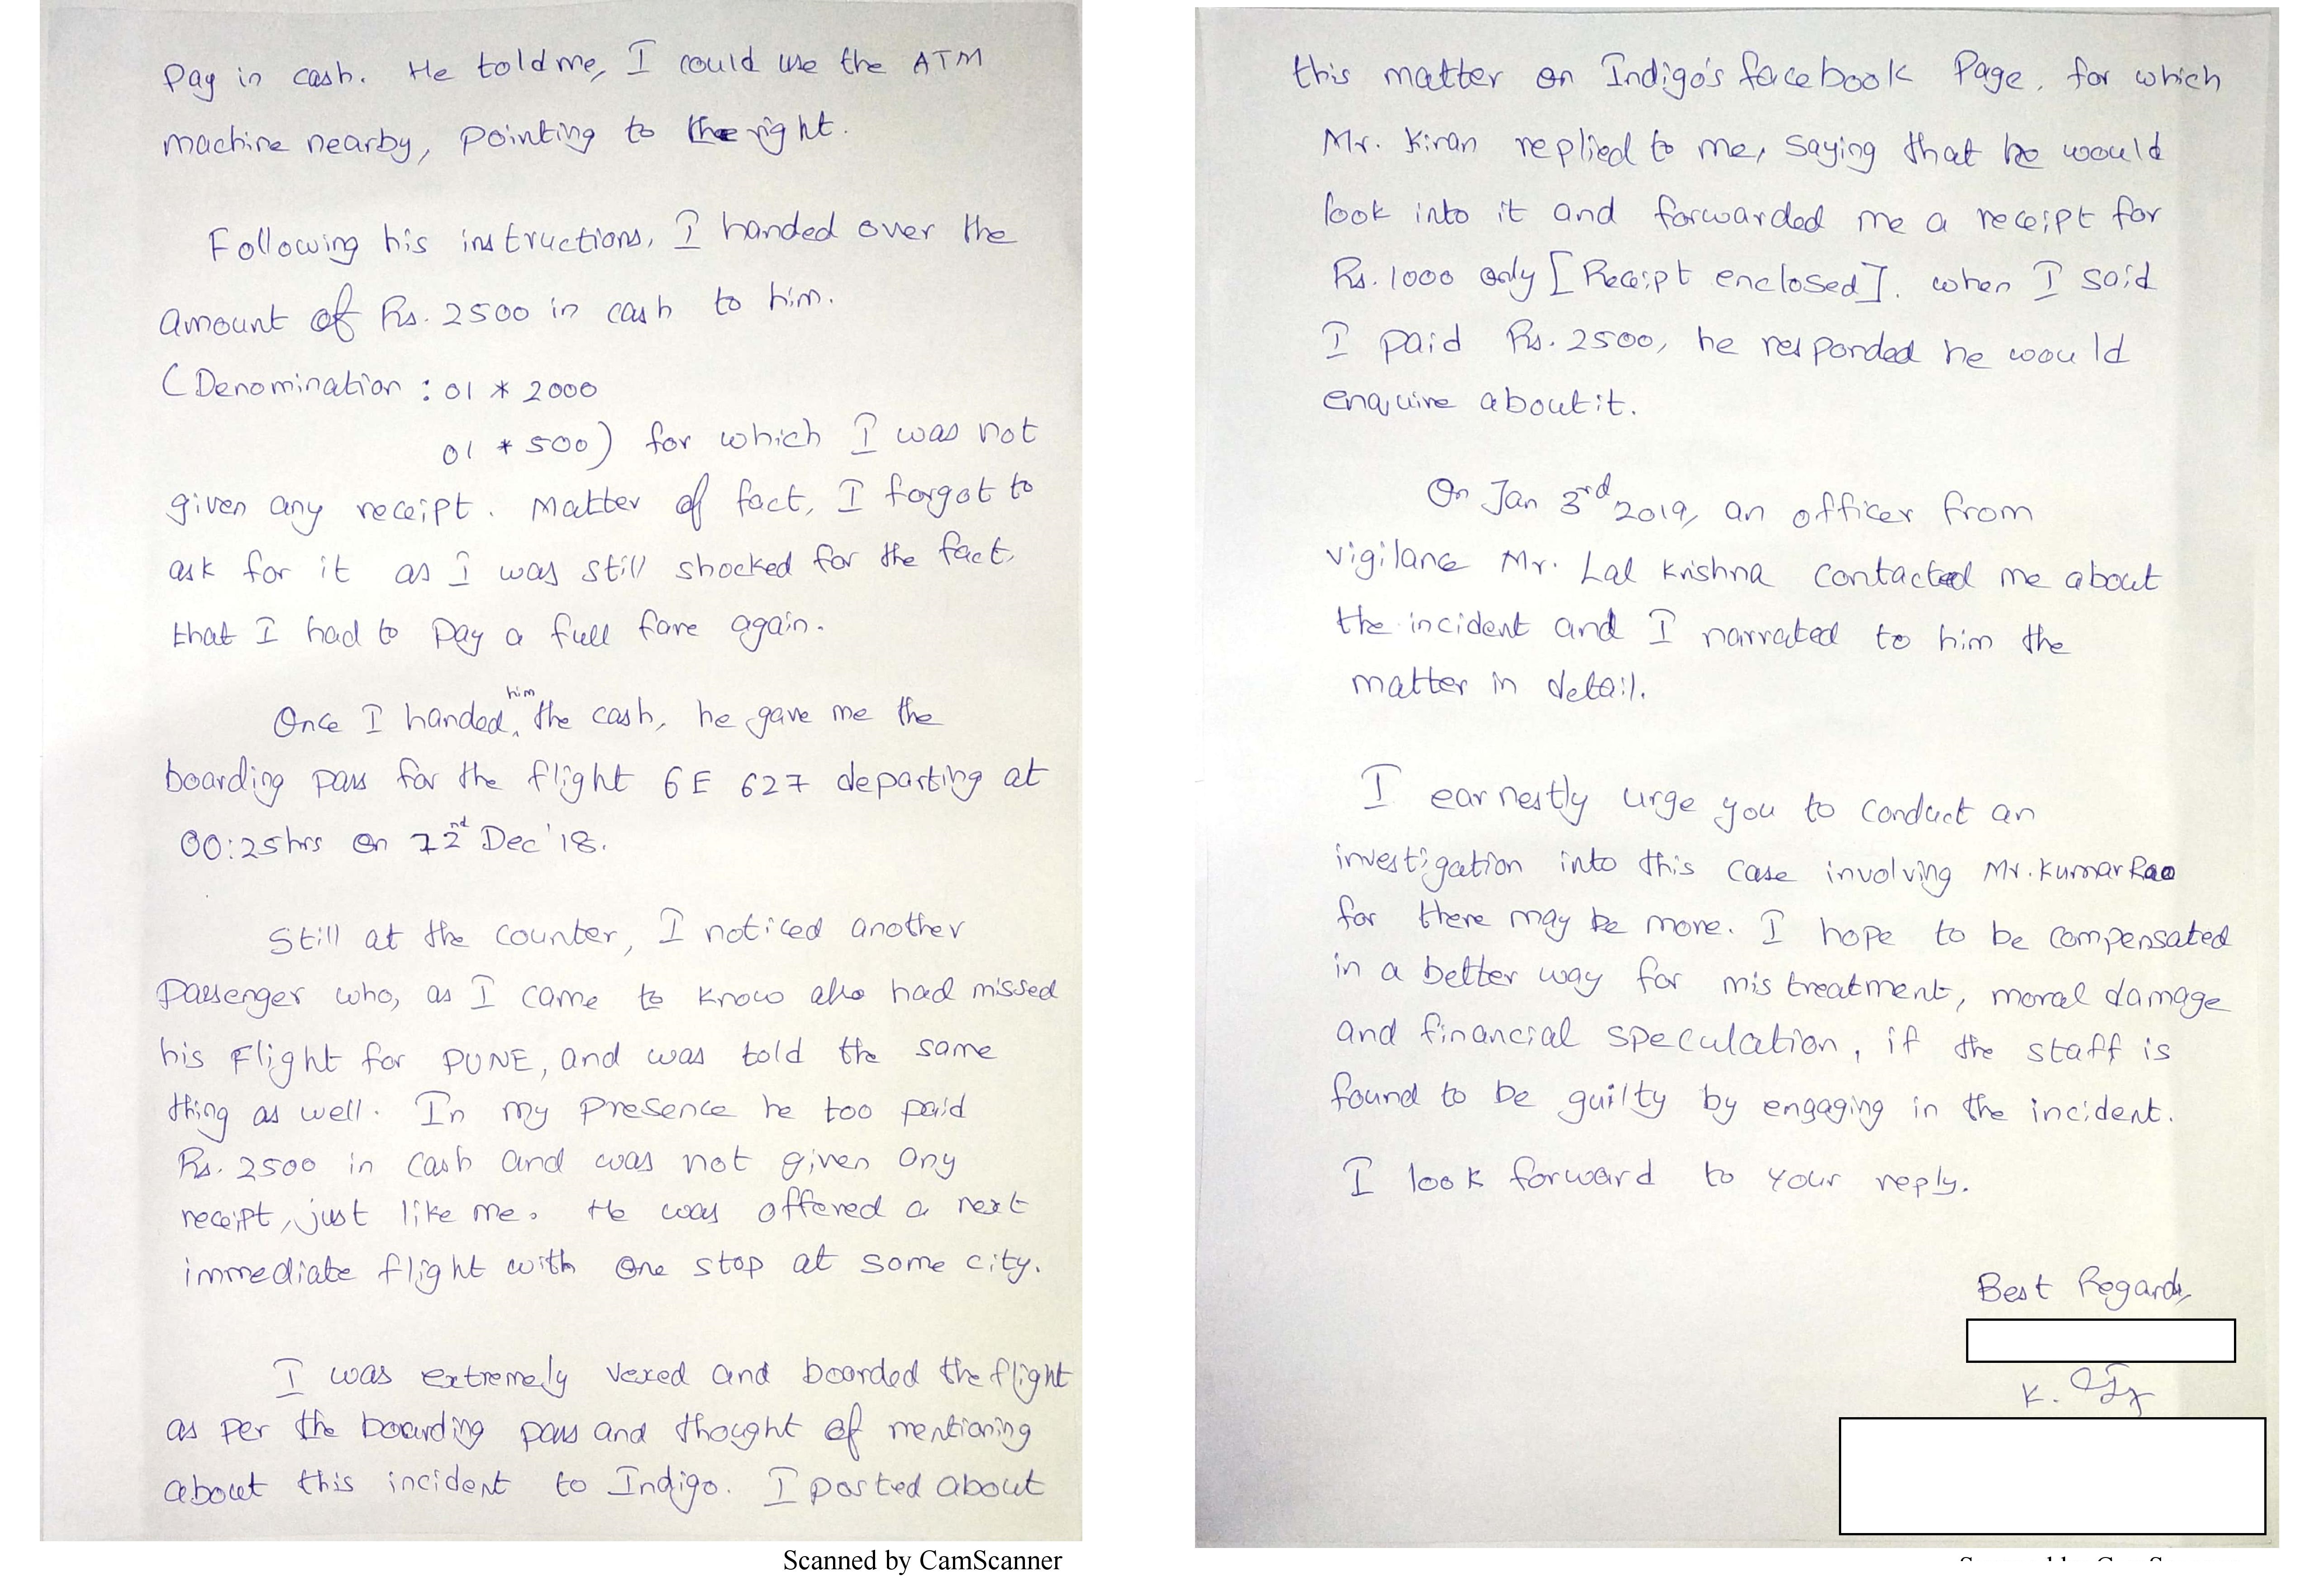 Pay in cash. He told me, I could use the ATM
machine nearby, pointing to the right.
Following his instructions, I handed over the
amount of Rs. 2500 in cash to him.
(Denomination : 01 * 2000
01 * 500) for which I was not
given any receipt. Matter of fact, I forgot to
ask for it as I was still shocked for the fact,
that I had to pay a full fare again.
Once I handed him the cash, he gave me the
boarding pass for the flight 6E 627 departing at
00:25hrs on 22nd Dec'18.
Still at the counter, I noticed another
passenger who, as I came to know also had missed
his Flight for PUNE, and was told the same
thing as well. In my presence he too paid
Rs. 2500 in cash and was not given any
receipt, just like me. He was offered a next
immediate flight with one stop at some city.
I was extremely vexed and boarded the flight
as per the boarding pass and thought of mentioning
about this incident to Indigo. I posted about
Scanned by CamScanner
this matter on Indigo's facebook Page, for which
Mr. Kiran replied to me, saying that he would
look into it and forwarded me a receipt for
Rs. 1000 only [Receipt enclosed]. when I said
I paid Rs. 2500, he responded he would
enquire about it.
On Jan 3rd 2019, an officer from
vigilance Mr. Lal Krishna contacted me about
the incident and I narrated to him the
matter in detail.
I earnestly urge you to conduct an
investigation into this case involving Mr. Kumar Rao
for there may be more. I hope to be compensated
in a better way for mistreatment, moral damage
and financial speculation, if the staff is
found to be guilty by engaging in the incident.
I look forward to your reply.
Best Regards,
K.